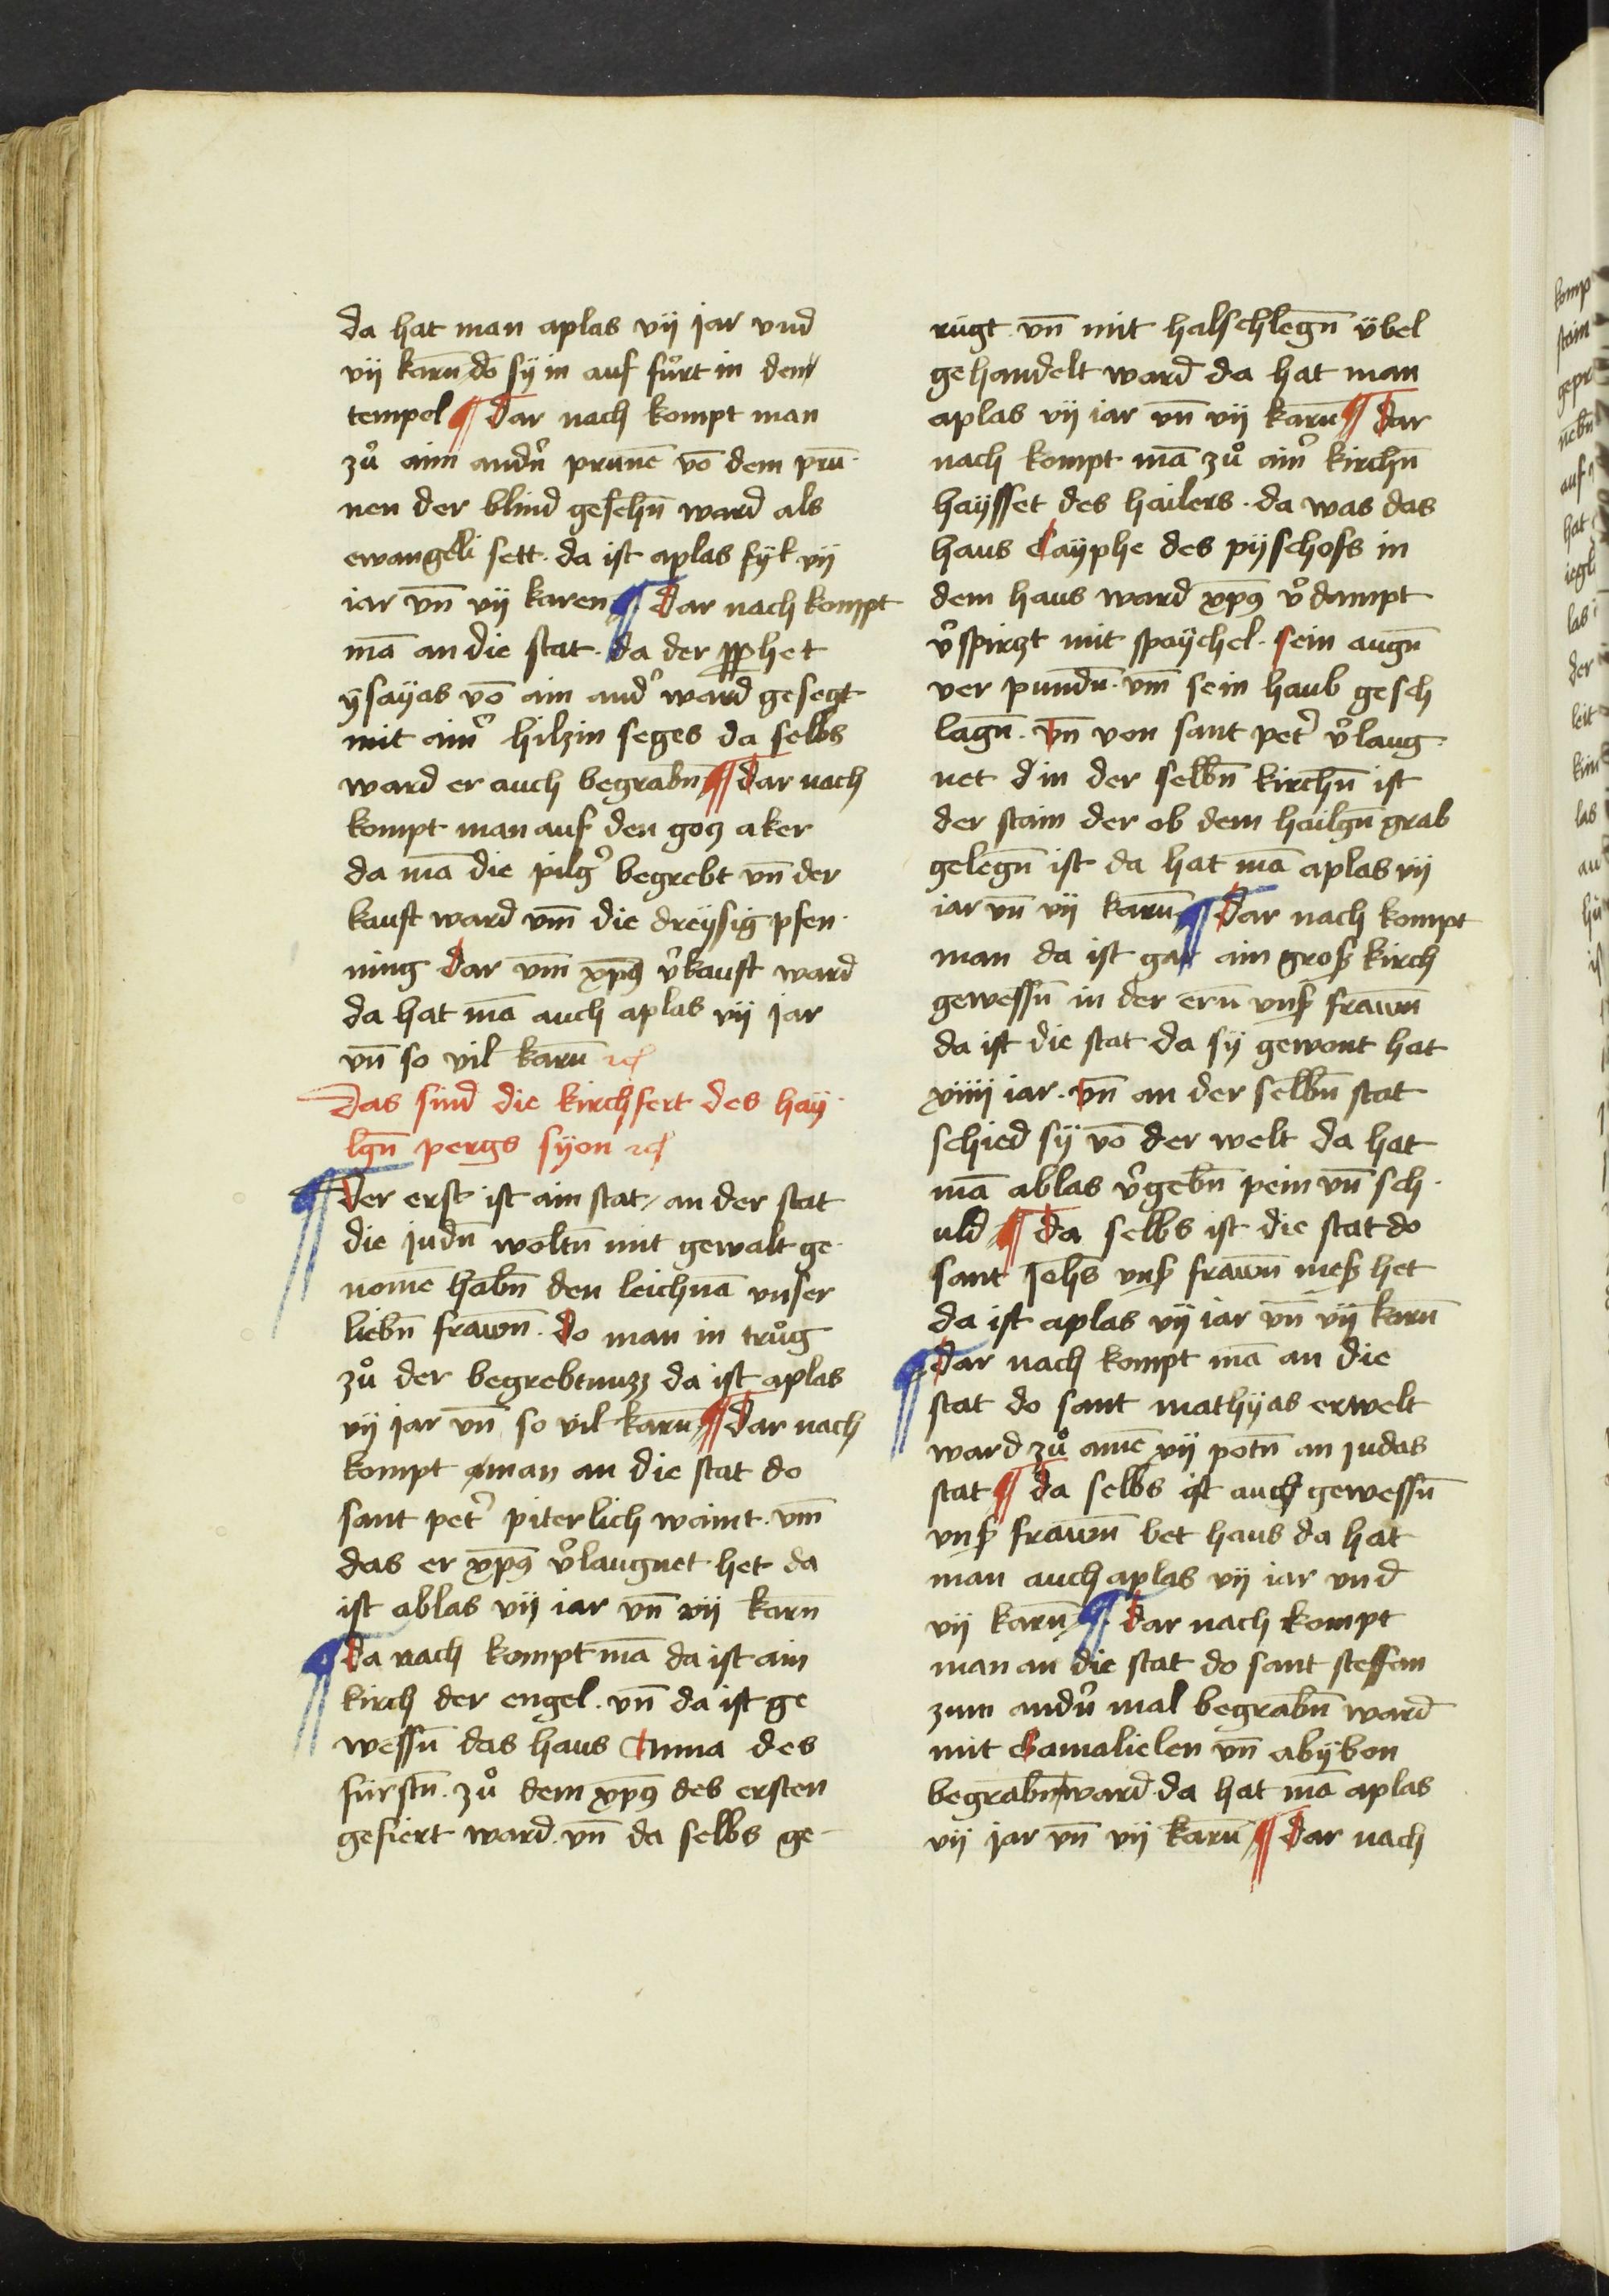 da hat man aplas vij jar vnd
vij karn̄ do sÿ in auf fu̇rt in dem
tempel ¶ Dar nach kompt man
zů aim andn̄ prunnē vō dem prū
nen der blind gesehn̄ ward als
ewangeli sett · da ist aplas fÿl vij
iar vn̄ vij karen ¶ Dar nach kompt
mā an die stat · da der ꝓphet
ÿsayas vō ain andˀ ward gesegt
mit aimˀ hilzin seges da selbs
ward er auch begrabn̄ ¶ Dar nach
kompt man auf den goz aker
da mā die pilgˀ begrebt vn̄ der
kauft ward vm̄ die dreÿsig pfen·
ning Dar vm̄ xp̄ꝰ v̉kauft ward
da hat mā auch aplas vij jar
vn̄ so vil karn̄ ⁊c̄
Das sind die kirchfert des hay·
lgn̄ pergs sÿon ⁊c̄
¶ Der erst ist ain stat / an der stat
die judn̄ woltn̄ mit gewalt ge·
nomē habn̄ den leichnā vnser
liebn̄ frawn̄ · Do man in trůg
zů der begrebtnuzz da ist aplas
vij jar vn̄ so vil karn̄ ¶ Dar nach
kompt man an die stat do
sant petˀ piterlich waint · vm̄
das er xp̄ꝰ v̉laugnet het da
ist ablas vij iar vn̄ vij karn̄
¶ Da nach kompt mā da ist ain
kirch der engel · vn̄ da ist ge
wessn̄ das haus Anna des
fürstn̄ · zů dem xp̄ꝰ des ersten
gefiert ward · vn̄ da selbs ge-
rügt · vn̄ mit halschlegn̄ übel
gehandelt ward da hat man
aplas vij iar vn̄ vij karn̄ ¶ Dar
nach kompt mā zů aimˀ kirchn̄
haÿsset des hailers · da was das
haus Cayphe des pÿschofs in
dem haus ward xp̄ꝰ v̉dampt
v̉spirzt mit spaychel · sein augn̄
ver pundn̄ · vm̄ sein haub gesch
lagn̄ · Vn̄ von sant petˀ v̉laug·
net Jn der selbn̄ kirchn̄ ist
der stain der ob dem hailgn̄ grab
gelegn̄ ist da hat mā aplas vij
iar vn̄ vij karn̄ ¶ Dar nach kompt
man da ist gar ain groß kirch
gewessn̄ in der ern̄ vnß frawn̄
da ist die stat da sÿ gewont hat
xiiij iar · Vn̄ an der selbn̄ stat
schied sÿ vō der welt da hat
mā ablas v̉gebn̄ pein vn̄ sch·
uld ¶ Da selbs ist die stat do
sant Johs̄ vnß frawn̄ meß het
da ist aplas vij iar vn̄ vij karn̄
¶ Dar nach kompt mā an die
stat do sant mathÿas erwelt
ward zů amē xij potn̄ an judas
stat ¶ Da selbs ist auch gewessn̄
vnß frawn̄ bet haus da hat
man auch aplas vij iar vnd
vij karn̄ ¶ Dar nach kompt
man an die stat do sant steffan
zum andn̄ mal begrabn̄ ward
mit Gamalielen vn̄ abÿbon
begrabn̄ ward · da hat mā aplas
vij jar vn̄ vij karn̄ ¶ Dar nach